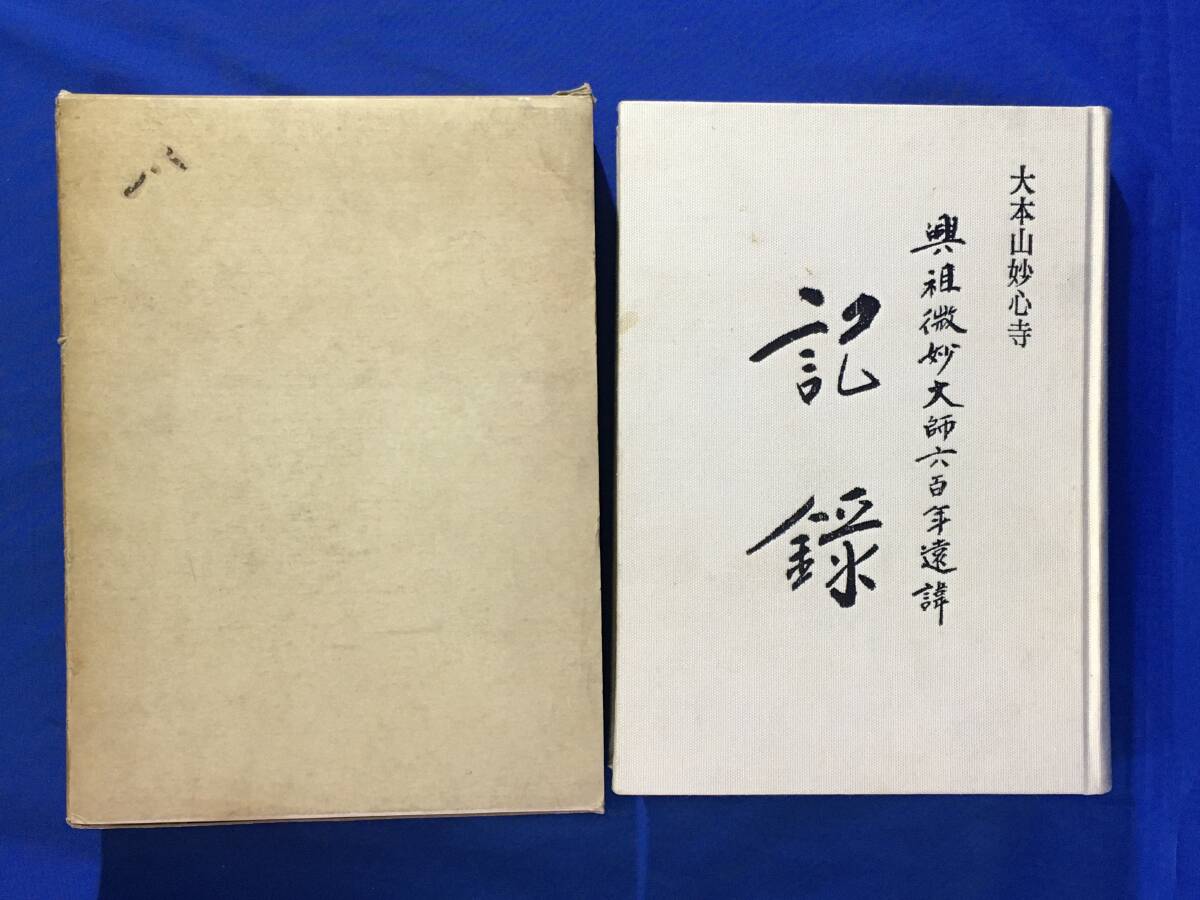 大本山妙心寺
興祖微妙大師六百年遠諱
記錄